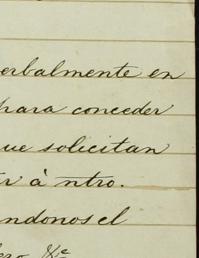 erbalmente en
para conceder
ue solicitan
à ntro.
ndonos el
&e